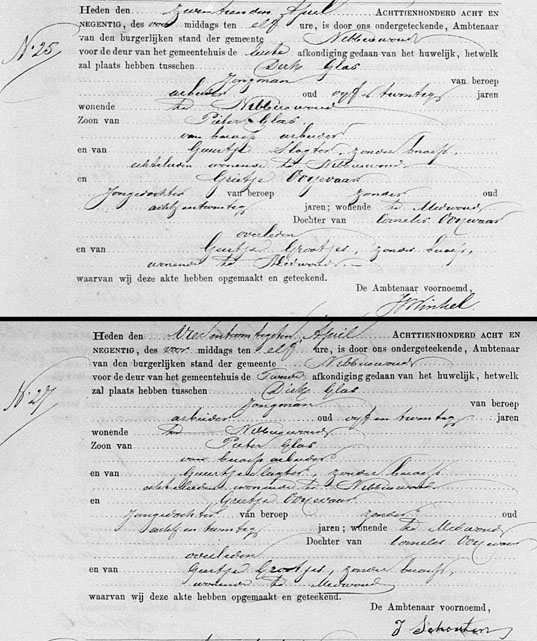 Heden den zeventienden April ACHTTIENHONDERD ACHT EN
NEGENTIG, des voor middags ten elf ure, is door ons ondergeteekende, Ambtenaar
Nº. 25
van den burgerlijken stand der gemeente Nibbixwoud
voor de deur van het gemeentehuis de eerste afkondiging gedaan van het huwelijk, hetwelk
zal plaats hebben tusschen Dirk Glas
Jongman van beroep
arbeider oud vijf en twintig jaren
wonende te Nibbixwoud
Zoon van Pieter Glas,
van beroep arbeider
en van Guurtje Slagter, zonder beroep,
echtelieden wonende te Nibbixwoud
en Grietje Ooijevaar
Jongedochter van beroep zonder oud
acht en twintig jaren; wonende te Medwoud
Dochter van Cornelis Ooijevaar
overleden
en van Geertje Grootjes, zonder beroep,
wonende te Medwoud
waarvan wij deze akte hebben opgemaakt en geteekend.
De Ambtenaar voornoemd,
JWinkel
Heden den vier en twintigsten April ACHTTIENHONDERD ACHT EN
NEGENTIG, des voor middags ten elf ure, is door ons ondergeteekende, Ambtenaar
van den burgerlijken stand der gemeente Nibbixwoud
voor de deur van het gemeentehuis de tweede afkondiging gedaan van het huwelijk, hetwelk
Nº. 27
zal plaats hebben tusschen Dirk Glas
Jongman van beroep
arbeider oud vijf en twintig jaren
wonende te Nibbixwoud
Zoon van Pieter Glas
van beroep arbeider
en van Guurtje Slagter, zonder beroep
echtelieden, wonende te Nibbixwoud
en Grietje Ooijevaar
Jongedochter van beroep zonder oud
acht en twintig jaren; wonende te Medwoud
Dochter van Cornelis Ooijevaar
overleden
en van Geertje Grootjes, zonder beroep,
wonende te Medwoud
waarvan wij deze akte hebben opgemaakt en geteekend.
De Ambtenaar voornoemd,
J Schouten